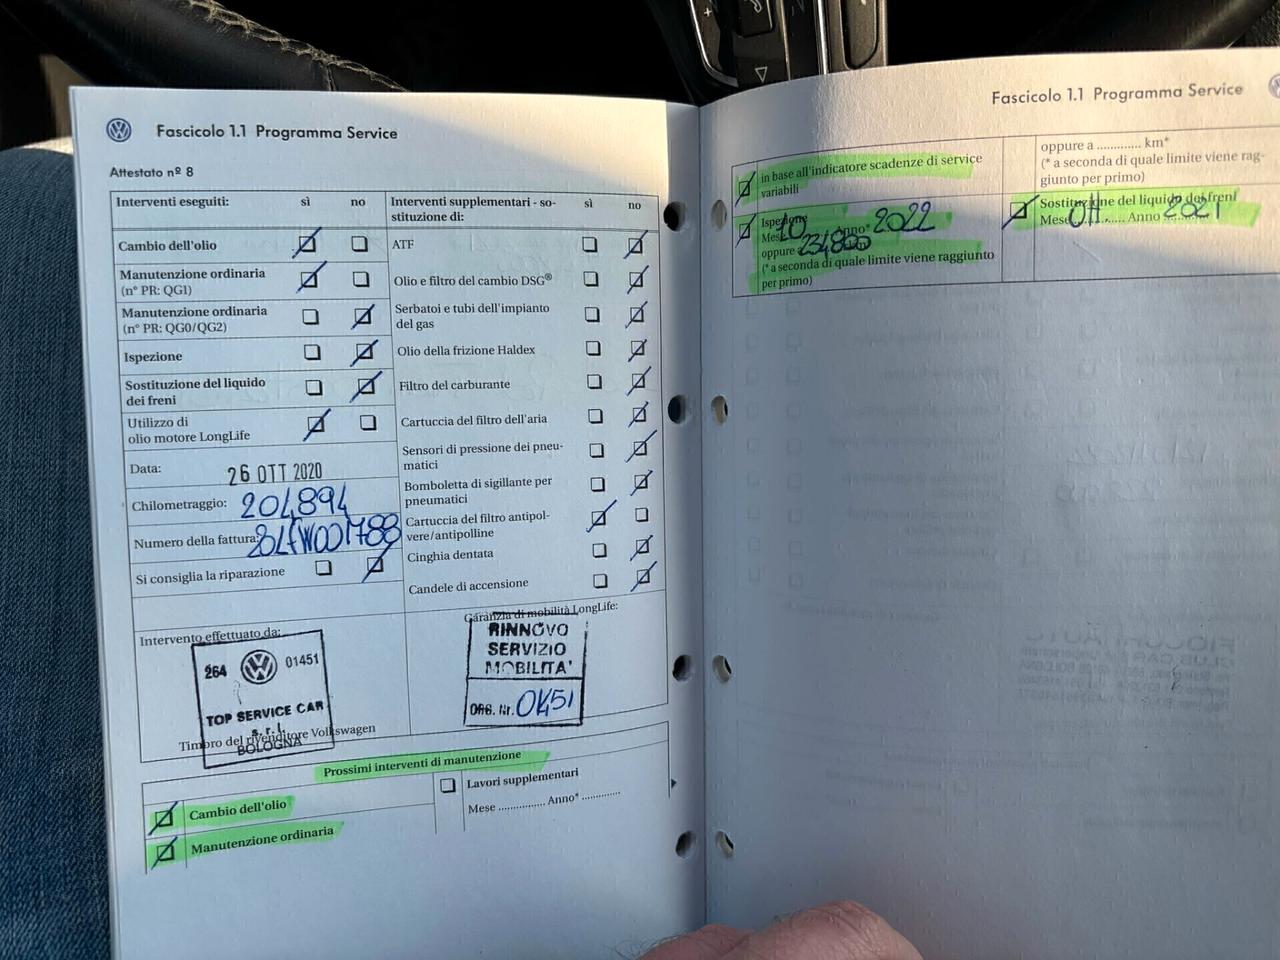 Fascicolo 1.1 Programma Service
Attestato nº 8
Interventi eseguiti: sì no
Cambio dell'olio
Manutenzione ordinaria
(nº PR: QG1)
Manutenzione ordinaria
(nº PR: QG0/QG2)
Ispezione
Sostituzione del liquido
dei freni
Utilizzo di
olio motore LongLife
Data: 26 OTT 2020
Chilometraggio: 204894
Numero della fattura:
Si consiglia la riparazione
Intervento effettuato da:
264 01451
TOP SERVICE CAR
s.r.l.
Timbro del rivenditore Volkswagen
BOLOGNA
Interventi supplementari - so-
stituzione di: sì no
ATF
Olio e filtro del cambio DSG®
Serbatoi e tubi dell'impianto
del gas
Olio della frizione Haldex
Filtro del carburante
Cartuccia del filtro dell'aria
Sensori di pressione dei pneu-
matici
Bomboletta di sigillante per
pneumatici
Cartuccia del filtro antipol-
vere/antipolline
Cinghia dentata
Candele di accensione
Garanzia di mobilità LongLife:
RINNOVO
SERVIZIO
MOBILITA'
ORG. Nr.
Prossimi interventi di manutenzione
Cambio dell'olio
Manutenzione ordinaria
Lavori supplementari
Mese ................ Anno* .............
Fascicolo 1.1 Programma Service
in base all'indicatore scadenze di service
variabili
Ispezione
Mese 10 Anno* 2022
oppure a 234800
(* a seconda di quale limite viene raggiunto
per primo)
oppure a ............. km*
(* a seconda di quale limite viene rag-
giunto per primo)
Sostituzione del liquido dei freni
Mese Ott Anno 2021